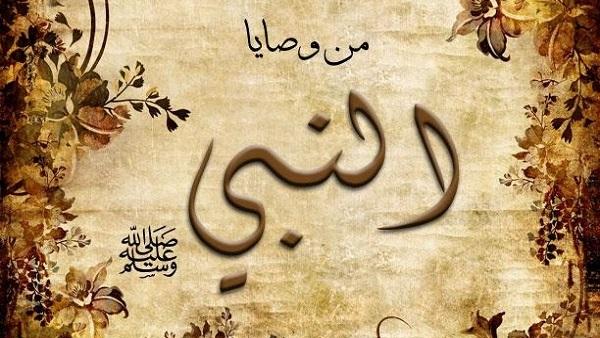 من وصايا
النبي
صلى الله عليه وسلم